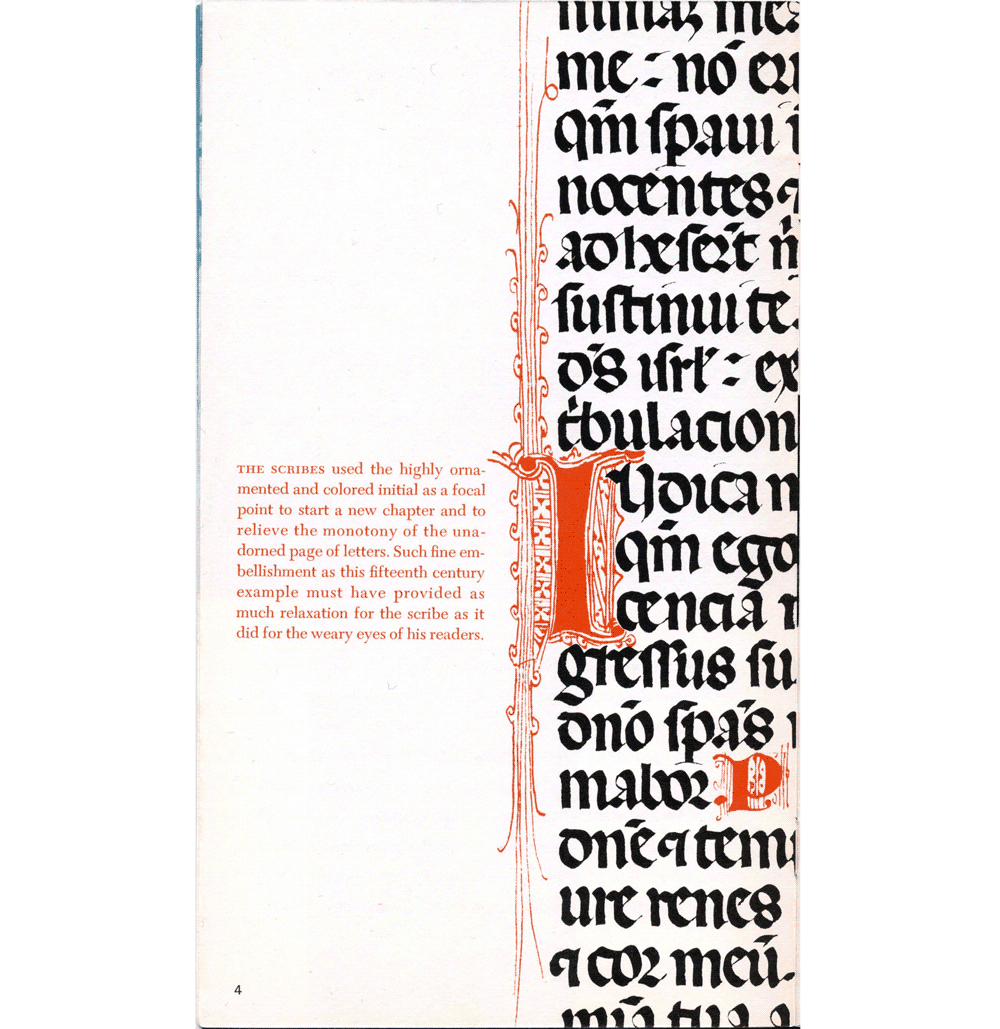 THE SCRIBES used the highly orna-
mented and colored initial as a focal
point to start a new chapter and to
relieve the monotony of the una-
dorned page of letters. Such fine em-
bellishment as this fifteenth century
example must have provided as
much relaxation for the scribe as it
did for the weary eyes of his readers.
4
me : nō eru
qm̄ sparui i
nocentes ⁊
adheser̄t m̄
sustinui te.
d̄s isrl' : ex
t'bulacion
Iudica m
qm̄ ego
cenciā m
gressus su
dnō spās n
mabor. P
dnē ⁊ tem
ure renes
⁊ cor meū.